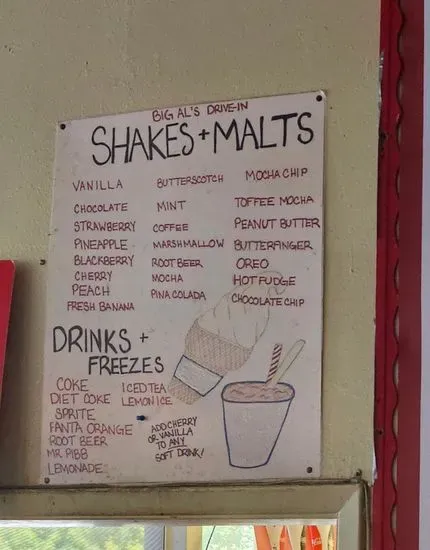 BIG AL'S DRIVE-IN
SHAKES + MALTS
VANILLA
CHOCOLATE
STRAWBERRY
PINEAPPLE
BLACKBERRY
CHERRY
PEACH
FRESH BANANA
BUTTERSCOTCH
MINT
COFFEE
MARSHMALLOW
ROOT BEER
MOCHA
PINA COLADA
MOCHA CHIP
TOFFEE MOCHA
PEANUT BUTTER
BUTTERFINGER
OREO
HOT FUDGE
CHOCOLATE CHIP
DRINKS +
FREEZES
COKE
DIET COKE
SPRITE
FANTA ORANGE
ROOT BEER
MR. PIBB
LEMONADE
ICED TEA
LEMON ICE
ADD CHERRY
OR VANILLA
TO ANY
SOFT DRINK!